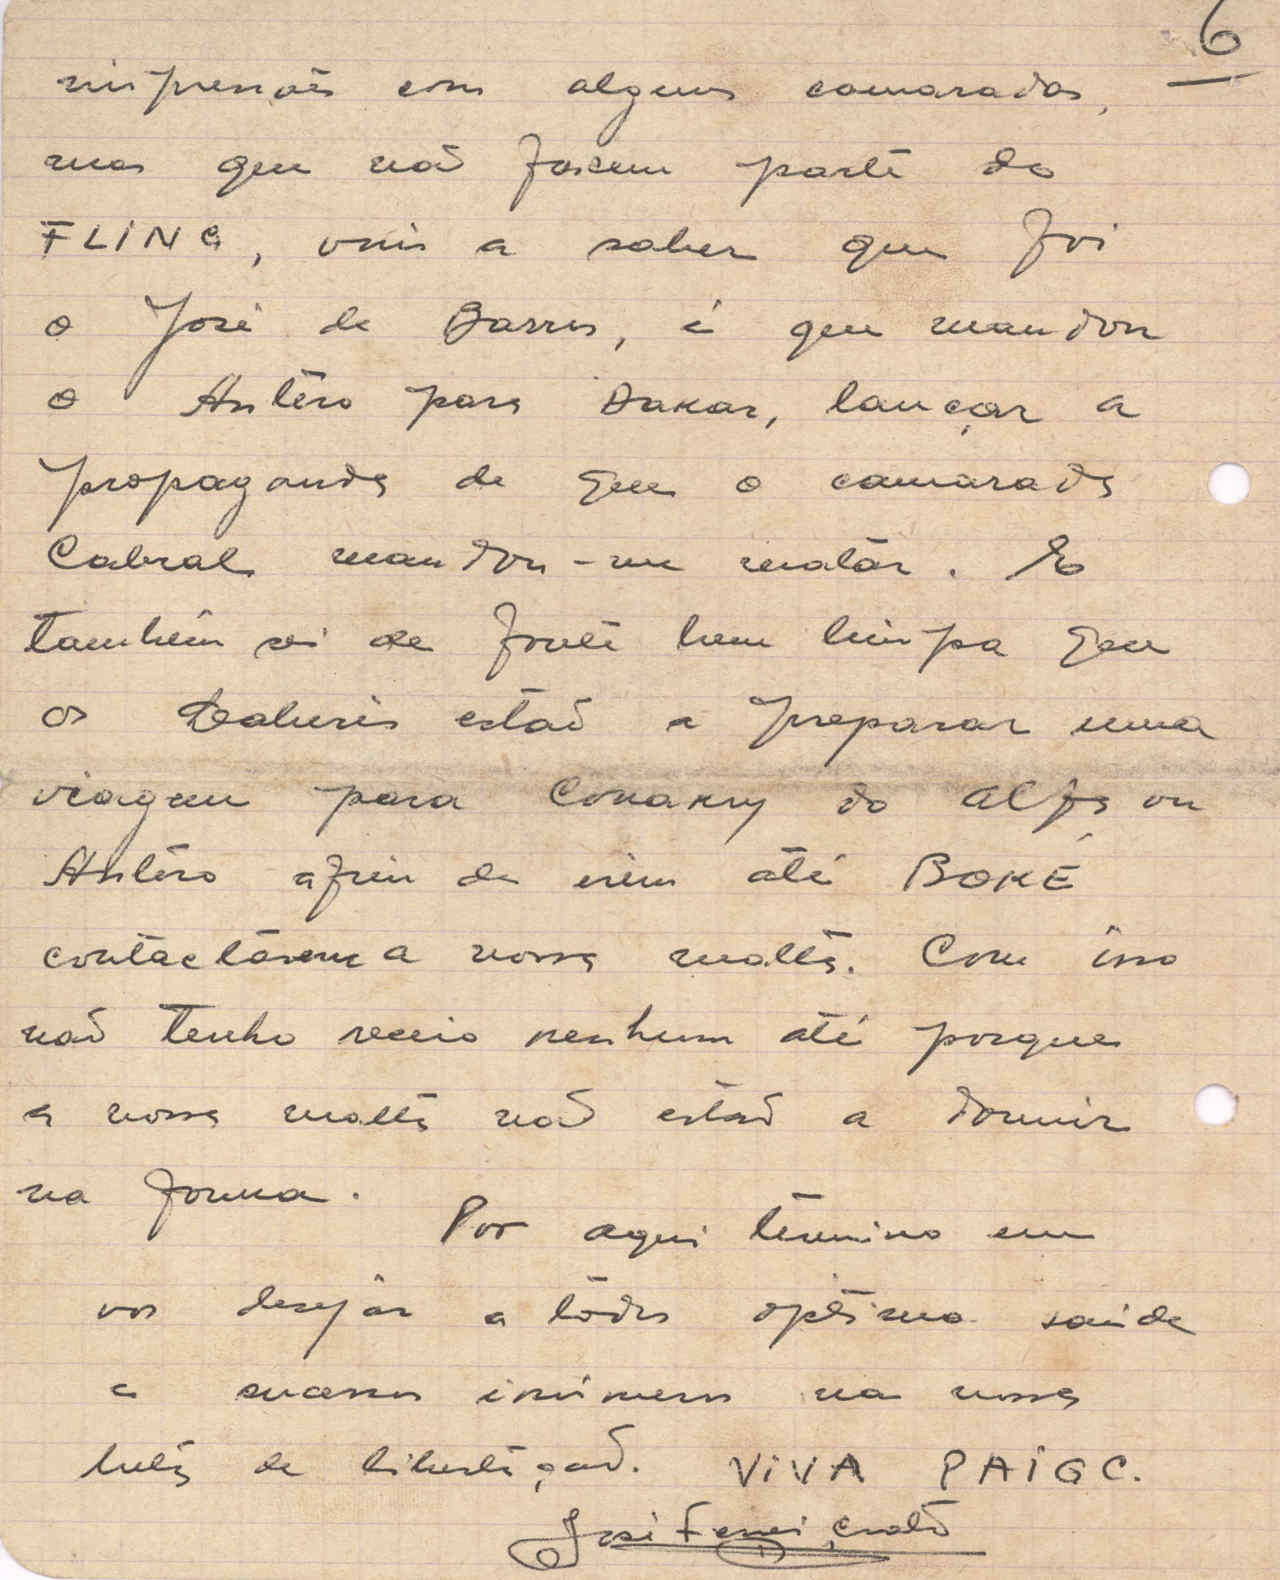 6
impressões com alguns camaradas,
mas que não fascem parte do
FLING, vim a saber que foi
o José de Barros, é que mandou
o Antéro para Dakar, lançar a
propaganda de que o camarada
Cabral mandou-me matár. Eo
também sei de fonte bem limpa que
os estão a preparar uma
viagem para Conakry do Alfa ou
Antéro afim de irem até BOKÉ
contactárem a nossa malta. Com isso
não tenho receio nenhum até porque
a nossa malta não estão a dormir
na forma.
Por aqui término em
vos desejár a tôdos óptima saúde
e sucessos inúmeros na nossa
luta de libertação. VIVA PAIGC.
José